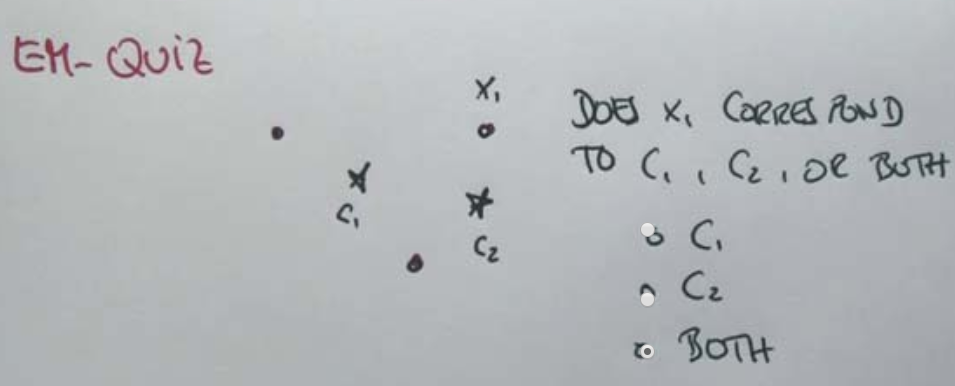 EM-QUIZ
X₁
C₁
C₂
DOES X₁ CORRESPOND
TO C₁, C₂, OR BOTH
C₁
C₂
BOTH